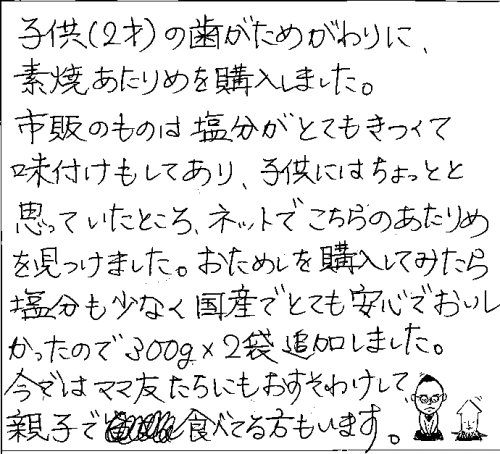 子供(2才)の歯がためがわりに、
素焼あたりめを購入しました。
市販のものは塩分がとてもきつくて
味付けもしてあり、子供にはちょっとと
思っていたところ、ネットでこちらのあたりめ
を見つけました。おためしを購入してみたら
塩分も少なく国産でとても安心でおいし
かったので300g×2袋追加しました。
今ではママ友たちにもおすそわけして、
親子で食べてる方もいます。